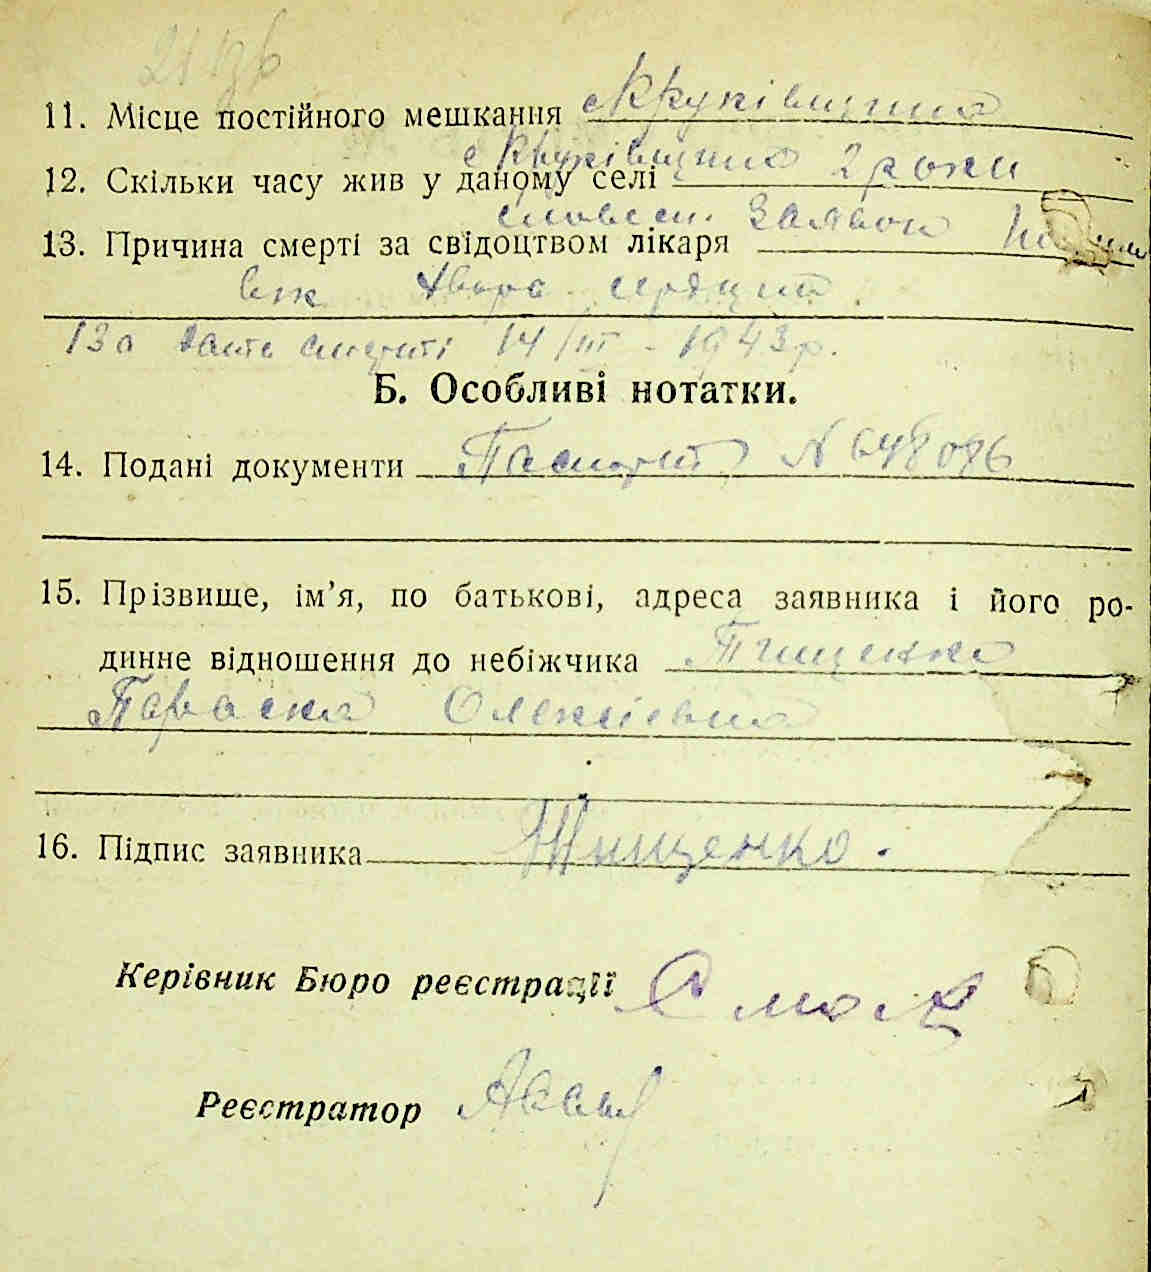 11. Місце постійного мешкання с Круківщина
с Круківщина 2 роки
12. Скільки часу жив у даному селі
словесн. заявою
13. Причина смерті за свідоцтвом лікаря
13а дата смерті 14/III - 1943 р.
Б. Особливі нотатки.
14. Подані документи Паспорт N 648086
15. Прізвище, ім’я, по батькові, адреса заявника і його ро-
динне відношення до небіжчика Тищенко
Параска Олексіевна
16. Підпис заявника Тищенко.
Керівник Бюро реєстрації
Реєстратор